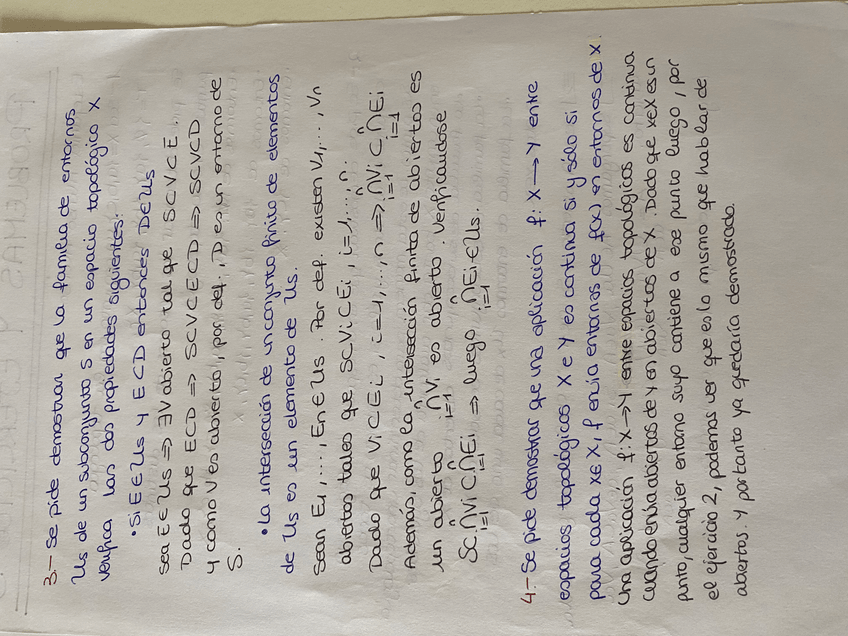 3.- Se pide demostrar que la familia de entornos
Us de un subconjunto S en un espacio topológico X
verifica las dos propiedades siguientes:
• Si E∈Us y E⊂D entonces D∈Us
Sea E∈Us ⇒ ∃V abierto tal que S⊂V⊂E.
Dado que E⊂D ⇒ S⊂V⊂E⊂D ⇒ S⊂V⊂D
y como V es abierto, por def., D es un entorno de
S.
• La intersección de un conjunto finito de elementos
de Us es un elemento de Us.
Sean E1, ..., En ∈ Us. Por def. existen V1, ..., Vn
abiertos tales que S⊂Vi⊂Ei, i=1, ..., n.
Dado que Vi⊂Ei, i=1, ..., n ⇒ ⋂ⁿᵢ₌₁ Vi ⊂ ⋂ⁿᵢ₌₁ Ei
Además, como la intersección finita de abiertos es
un abierto ⋂ⁿᵢ₌₁ Vi es abierto. Verificándose
S⊂ ⋂ⁿᵢ₌₁ Vi ⊂ ⋂ⁿᵢ₌₁ Ei ⇒ luego ⋂ⁿᵢ₌₁ Ei ∈ Us.
4.- Se pide demostrar que una aplicación f: X→Y entre
espacios topológicos X e Y es continua si y sólo si
para cada x∈X, f envía entornos de f(x) en entornos de x.
Una aplicación f: X→Y entre espacios topológicos es continua
cuando envía abiertos de Y en abiertos de X. Dado que x∈X es un
punto, cualquier entorno suyo contiene a ese punto luego, por
el ejercicio 2, podemos ver que es lo mismo que hablar de
abiertos. Y por tanto ya quedaría demostrado.